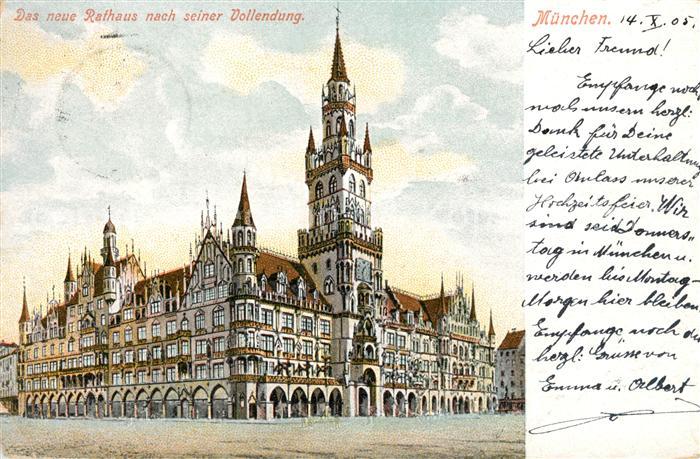 Das neue Rathaus nach seiner Vollendung.
München. 14. X. 05.
Lieber Freund!
Empfange noch,
mals unsern herzl.
Dank für Deine
geleistete Unterhaltung
bei Anlass unserer
Hochzeitsfeier. Wir
sind seid Donners-
tag in München u.
werden bis Montag-
Morgen hier bleiben
Empfange noch die
herzl. Grüsse von
Emma u. Albert